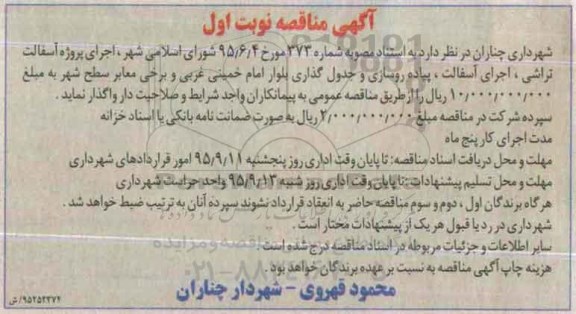 آگهی مناقصه نوبت اول
شهرداری چناران در نظر دارد به استناد مصوبه شماره ۳۷۳ مورخ ۹۵٫۶٫۴ شورای اسلامی شهر ، اجرای پروژه آسفالت
تراشی ، اجرای آسفالت ، پیاده روسازی و جدول گذاری بلوار امام خمینی غربی و برخی معابر سطح شهر به مبلغ
۱۰٫۰۰۰٫۰۰۰٫۰۰۰ ریال را از طریق مناقصه عمومی به پیمانکاران واجد شرایط و صلاحیت دار واگذار نماید .
سپرده شرکت در مناقصه مبلغ ۲٫۰۰۰٫۰۰۰٫۰۰۰ ریال به صورت ضمانت نامه بانکی یا اسناد خزانه
مدت اجرای کار پنج ماه
مهلت و محل دریافت اسناد مناقصه: تا پایان وقت اداری روز پنجشنبه ۹۵٫۹٫۱۱ امور قراردادهای شهرداری
مهلت و محل تسلیم پیشنهادات : تا پایان وقت اداری روز شنبه ۹۵٫۹٫۱۳ واحد حراست شهرداری
هر گاه برندگان اول ، دوم و سوم مناقصه حاضر به انعقاد قرارداد نشوند سپرده آنان به ترتیب ضبط خواهد شد .
شهرداری در رد یا قبول هر یک از پیشنهادات مختار است .
سایر اطلاعات و جزئیات مربوطه در اسناد مناقصه درج شده است .
هزینه چاپ آگهی مناقصه به نسبت بر عهده برندگان خواهد بود .
محمود قهروی - شهردار چناران
۹۵۲۵۲۳۷۲/ش